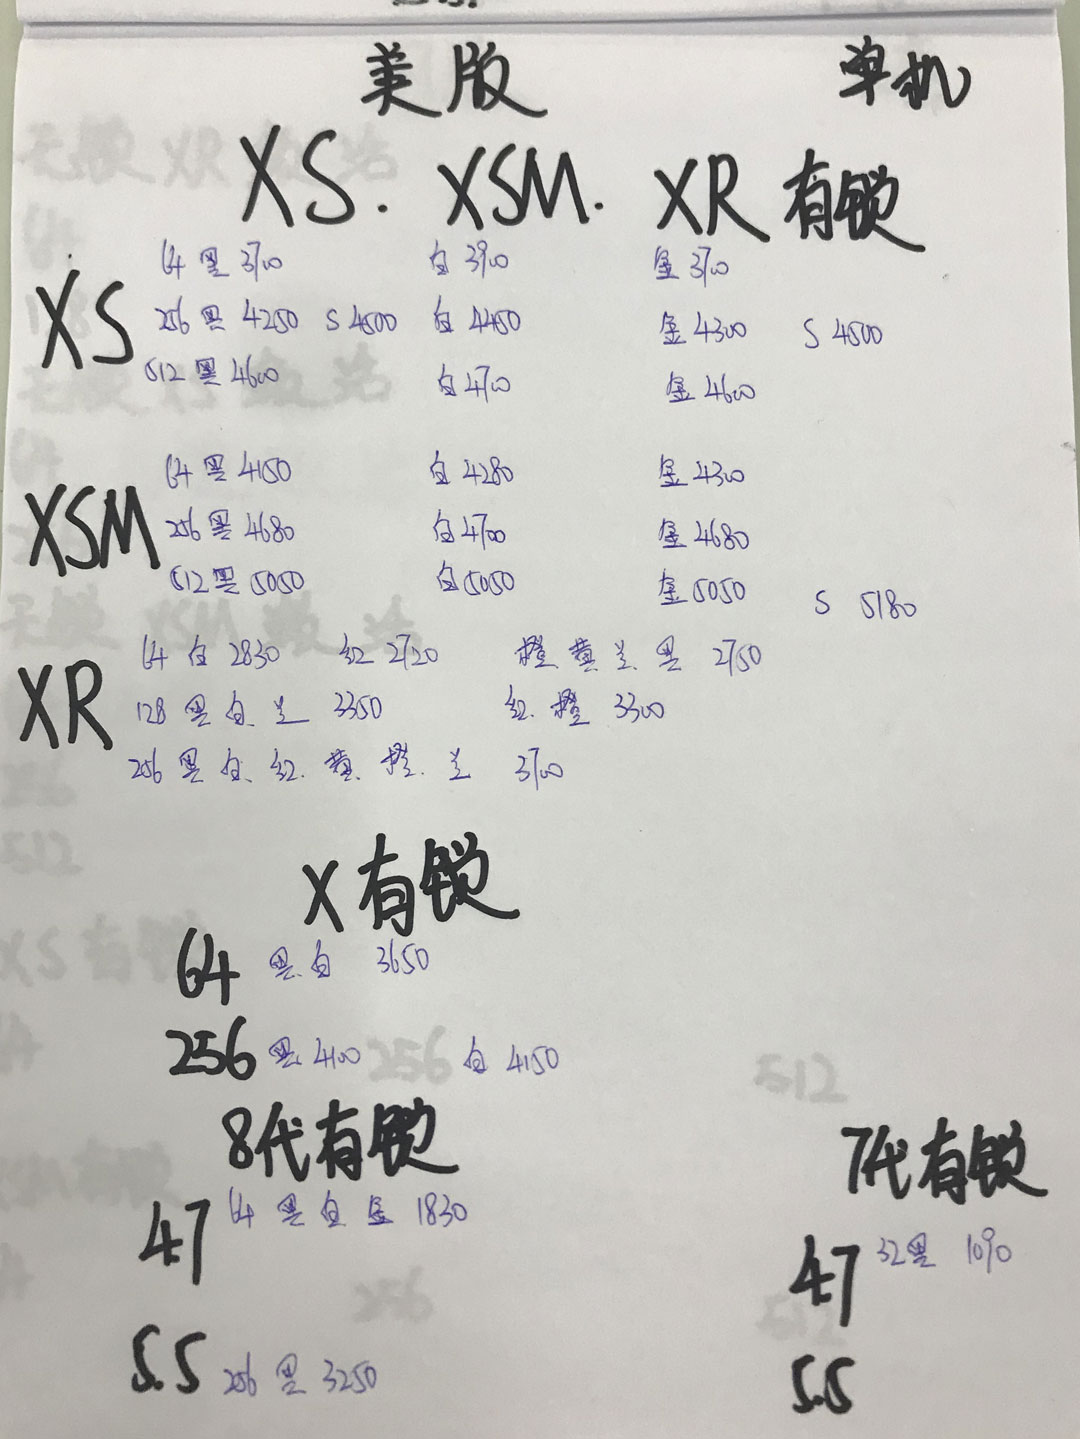 美版 单机
XS. XSM. XR 有锁
XS
64 黑 3700 白 3900 金 3700
256 黑 4250 S 4500 白 4450 金 4300 S 4500
512 黑 4600 白 4700 金 4600
XSM
64 黑 4150 白 4280 金 4300
256 黑 4680 白 4700 金 4680
512 黑 5050 白 5050 金 5050 S 5180
XR
64 白 2830 红 2720 橙 黄 兰 黑 2750
128 黑 白 兰 3350 红. 橙 3300
256 黑 白. 红. 黄. 橙. 兰 3700
X 有锁
64 黑.白 3650
256 黑 4100 白 4150
8代有锁
4.7 64 黑 白 金 1830
5.5 256 黑 3250
7代有锁
4.7 32黑 1090
5.5